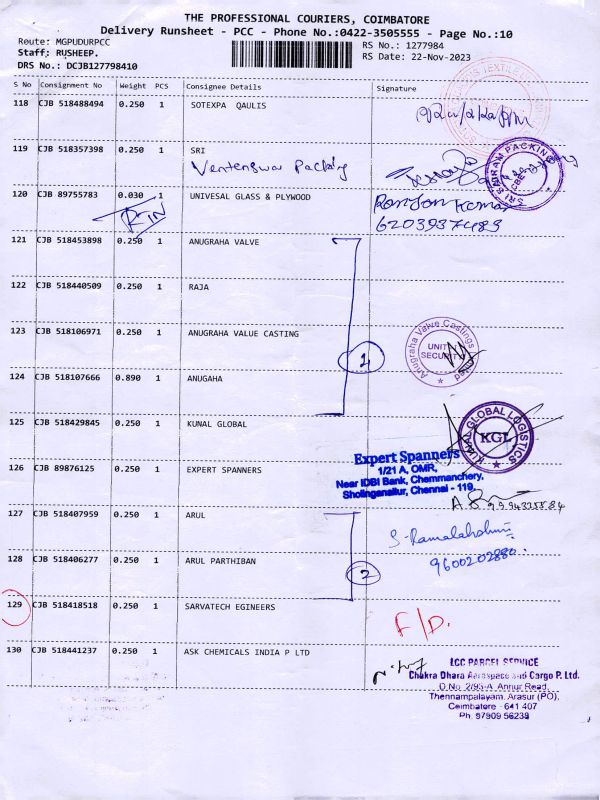 THE PROFESSIONAL COURIERS, COIMBATORE
Delivery Runsheet - PCC - Phone No.:0422-3505555 - Page No.:10
Route: MGPUDURPCC
RS No.: 1277984
Staff; RUSHEEP.
RS Date: 22-Nov-2023
DRS No.: DCJB127798410
S No Consignment No Weight PCS Consignee Details Signature
118 CJB 518488494 0.250 1 SOTEXPA QAULIS
119 CJB 518357398 0.250 1 SRI
Packing
SRI SAIRAM PACKING
CBE
120 CJB 89755783 0.030 1 UNIVESAL GLASS & PLYWOOD
Ranjan Kumar
6203937483
121 CJB 518453898 0.250 1 ANUGRAHA VALVE
122 CJB 518440509 0.250 1 RAJA
123 CJB 518106971 0.250 1 ANUGRAHA VALUE CASTING
1
Anugraha Valve Castings
UNIT
SECURITY
124 CJB 518107666 0.890 1 ANUGAHA
125 CJB 518429845 0.250 1 KUNAL GLOBAL
KUNAL GLOBAL LOGISTICS
KGL
126 CJB 89876125 0.250 1 EXPERT SPANNERS
Expert Spanners
1/21 A, OMR,
Near IDBI Bank, Chemmanchery,
Sholinganallur, Chennai - 119.
127 CJB 518407959 0.250 1 ARUL
S. Ramalakshmi
9600202880.
128 CJB 518406277 0.250 1 ARUL PARTHIBAN
2
129 CJB 518418518 0.250 1 SARVATECH EGINEERS
F/D.
130 CJB 518441237 0.250 1 ASK CHEMICALS INDIA P LTD
LCC PARCEL SERVICE
Chakra Dhara Aerospace and Cargo P. Ltd.
D.No. 2/95-A, Annur Road,
Thennampalayam, Arasur (PO),
Coimbatore - 641 407
Ph. 97909 56239